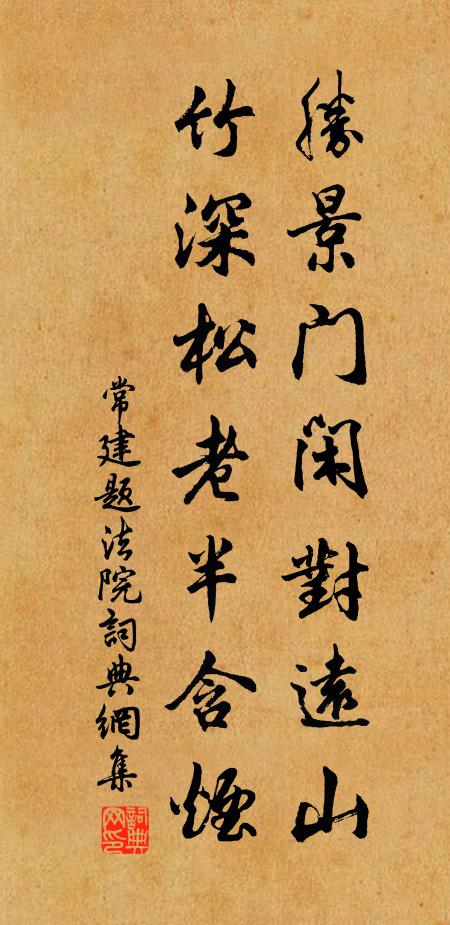 勝景門閑對遠山
竹深松老半含煙
常建題法院詞典網集
詞典网印